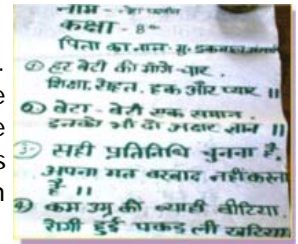 नाम -
कक्षा - 8
पिता का नाम - मु. इकबाल
① हर बेटी की मांगे चार,
शिक्षा, सेहत, हक और प्यार ॥
② बेटा - बेटी एक समान
इनको भी दो अक्षर ज्ञान ॥
③ सही प्रतिनिधि चुनना है,
अपना मत बरबाद नहीं करना
है ॥
④ कम उम्र की ब्याही बीटिया
रोगी हुई पकड़ ली खटिया
.
e
e
s
n